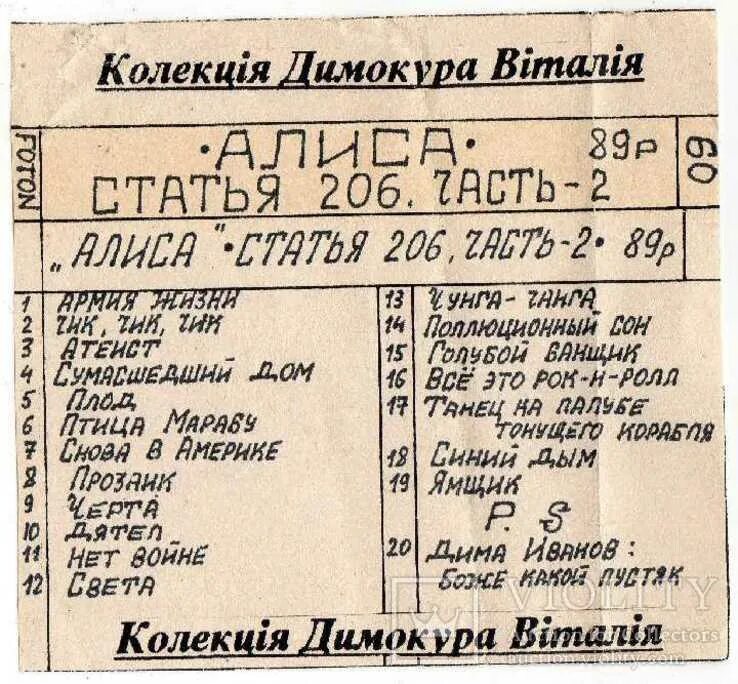 Колекція Димокура Віталія
FOTON
•АЛИСА•
89р
60
СТАТЬЯ 206. ЧАСТЬ-2
„АЛИСА"•СТАТЬЯ 206, ЧАСТЬ-2• 89р
1 АРМИЯ ЖИЗНИ
2 ЧИК, ЧИК, ЧИК
3 АТЕИСТ
4 СУМАСШЕДШИЙ ДОМ
5 ПЛОД
6 ПТИЦА МАРАБУ
7 СНОВА В АМЕРИКЕ
8 ПРОЗАИК
9 ЧЕРТА
10 ДЯТЕЛ
11 НЕТ ВОЙНЕ
12 СВЕТА
13 ЧУНГА-ЧАНГА
14 ПОЛЛЮЦИОННЫЙ СОН
15 ГОЛУБОЙ БАНЩИК
16 ВСЁ ЭТО РОК-Н-РОЛЛ
17 ТАНЕЦ НА ПАЛУБЕ
ТОНУЩЕГО КОРАБЛЯ
18 СИНИЙ ДЫМ
19 ЯМЩИК
P. S
20 ДИМА ИВАНОВ:
БОЖЕ КАКОЙ ПУСТЯК
Колекція Димокура Віталія
VIOLITY
Auction for Collectors
auction.violity.com